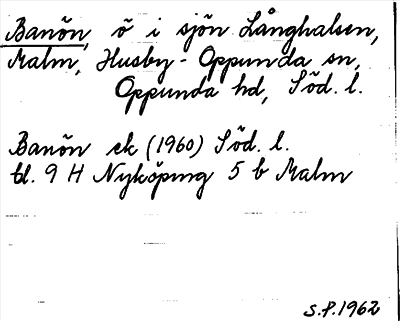 Banön, ö i sjön Långhalsen,
Malm, Husby-Oppunda sn,
Oppunda hd, Söd. l.
Banön ek (1960) Söd. l.
bl. 9 H Nyköping 5 b Malm
S.P. 1962